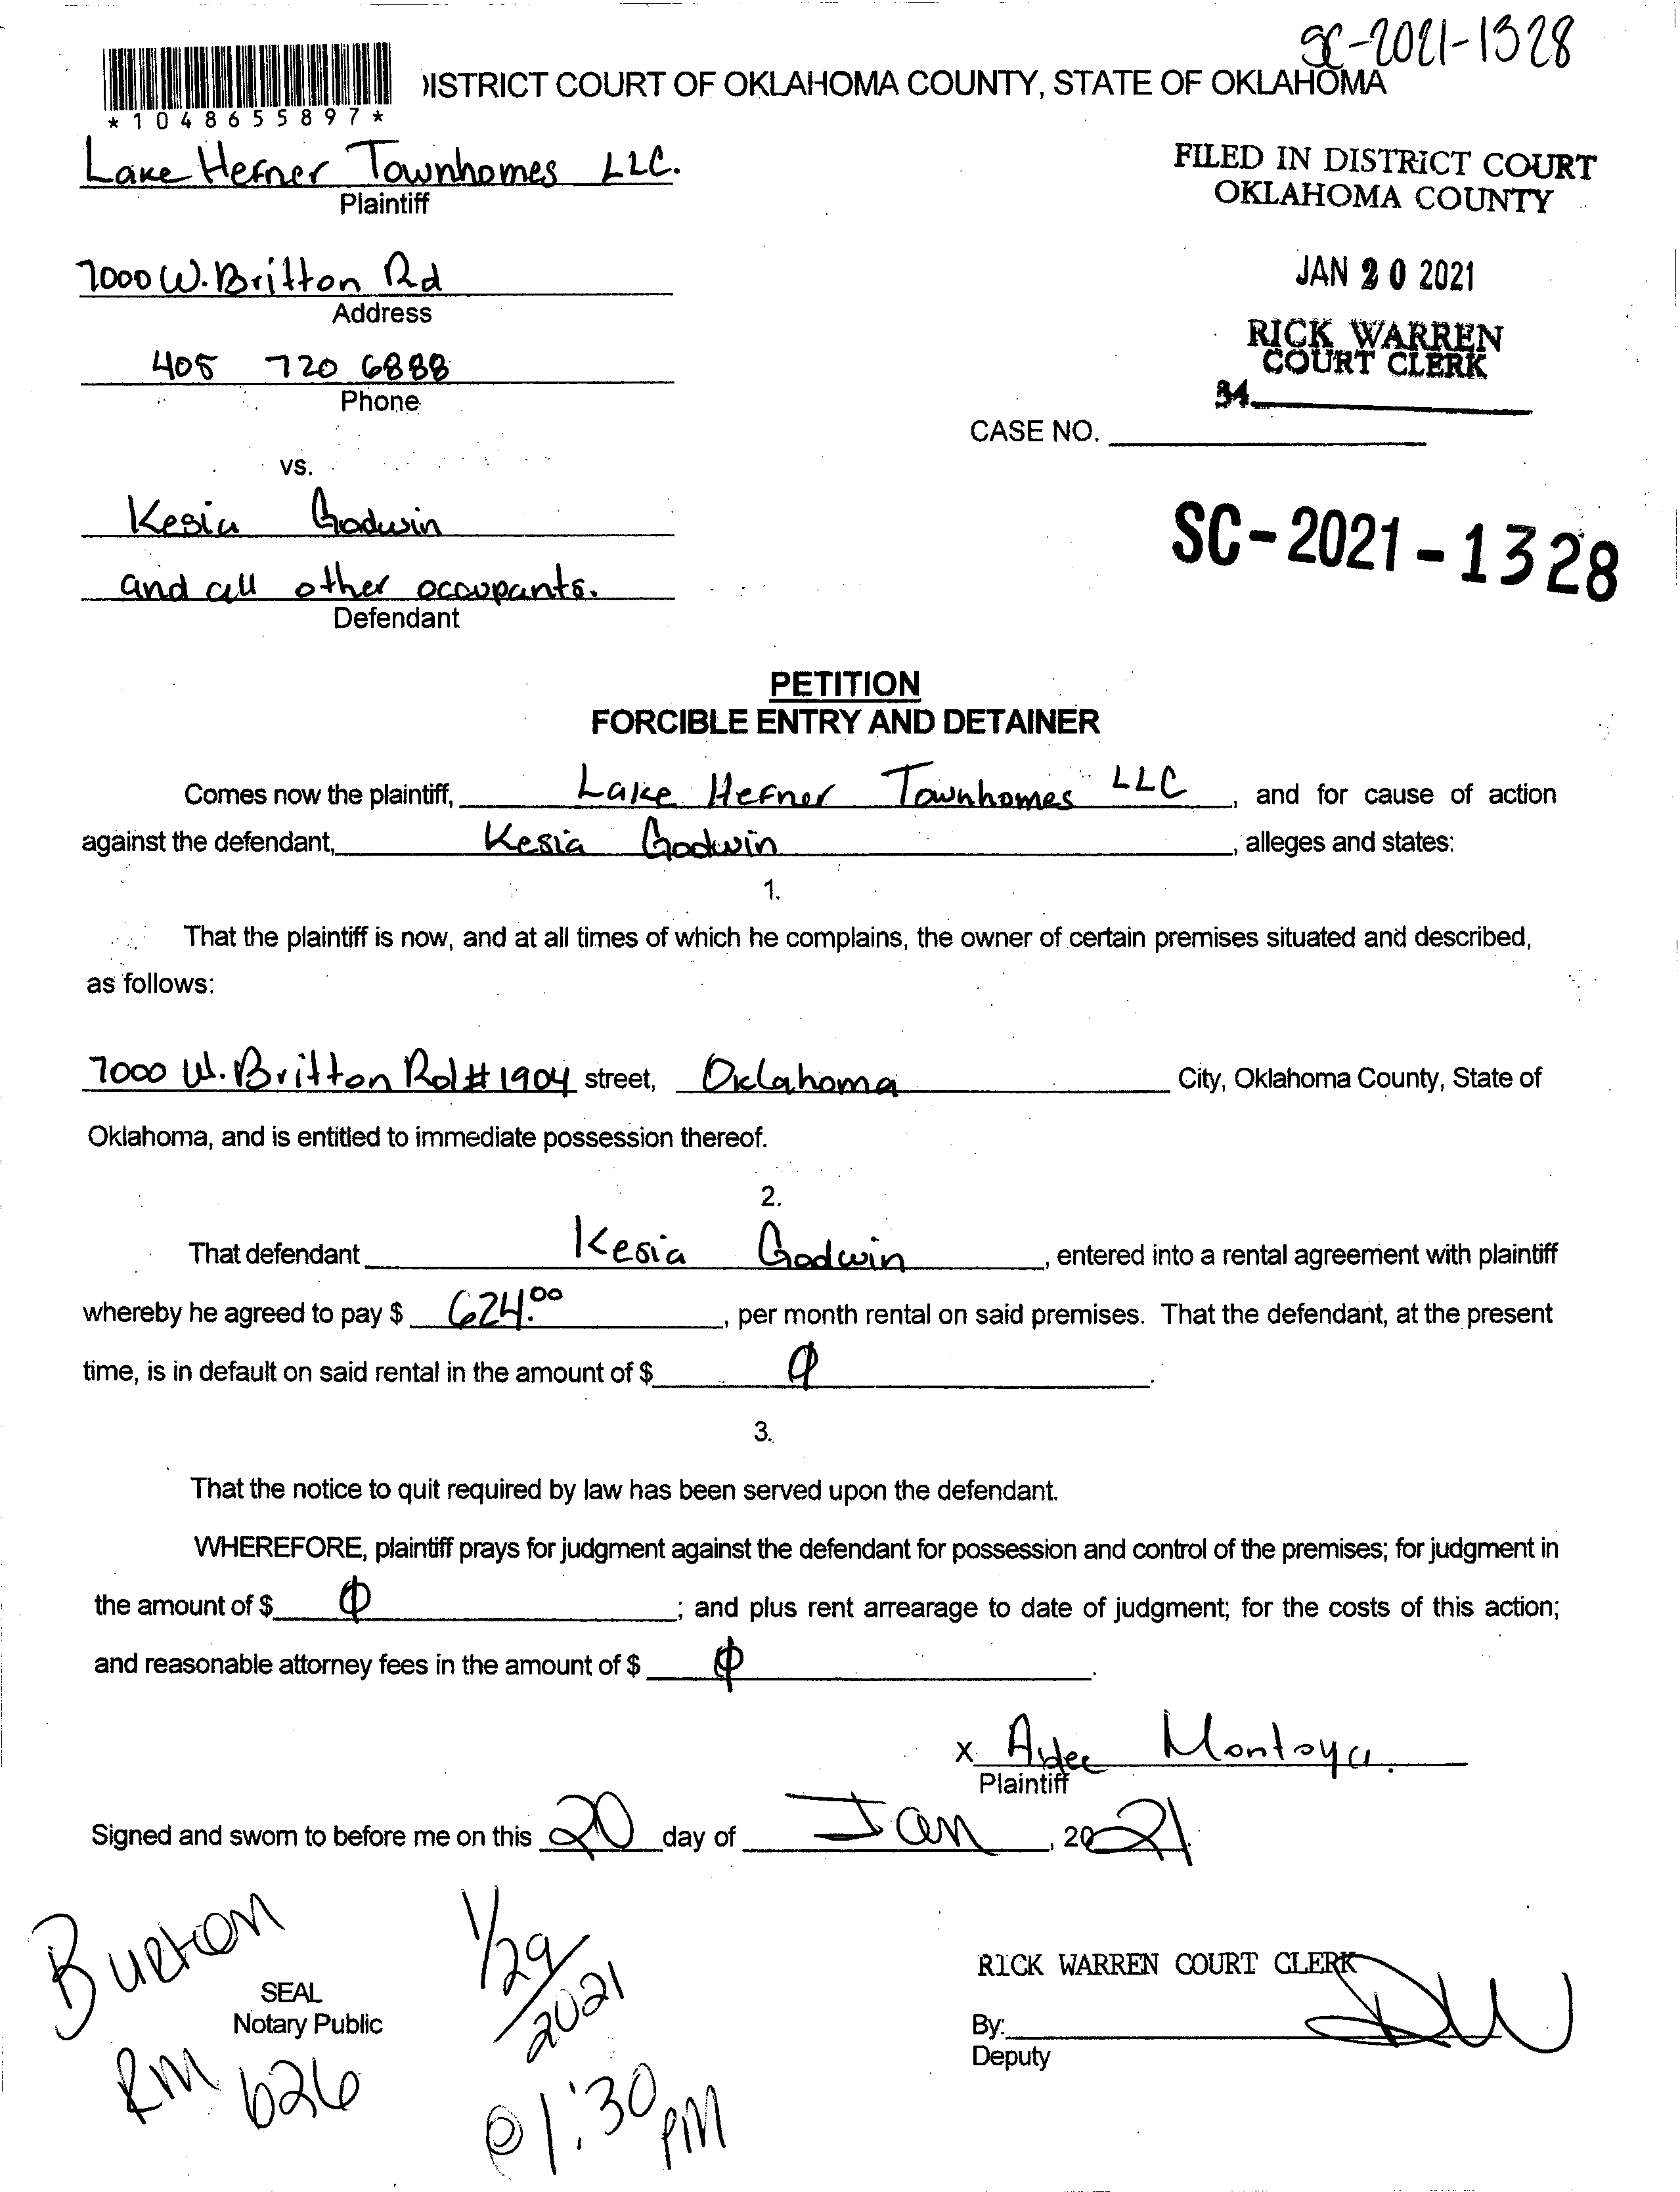 SC-2021-1328
DISTRICT COURT OF OKLAHOMA COUNTY, STATE OF OKLAHOMA
*1048655897*
Lake Hefner Townhomes LLC.
Plaintiff
FILED IN DISTRICT COURT
OKLAHOMA COUNTY
7000 W. Britton Rd
Address
JAN 20 2021
RICK WARREN
COURT CLERK
405 720 6888
Phone
34
CASE NO.
vs.
Kesia Godwin
and all other occupants.
Defendant
SC-2021-1328
PETITION
FORCIBLE ENTRY AND DETAINER
Comes now the plaintiff, Lake Hefner Townhomes LLC, and for cause of action
against the defendant, Kesia Godwin, alleges and states:
1.
That the plaintiff is now, and at all times of which he complains, the owner of certain premises situated and described,
as follows:
7000 W. Britton Rd #1904 street, Oklahoma City, Oklahoma County, State of
Oklahoma, and is entitled to immediate possession thereof.
2.
That defendant Kesia Godwin, entered into a rental agreement with plaintiff
whereby he agreed to pay $ 624.00, per month rental on said premises. That the defendant, at the present
time, is in default on said rental in the amount of $ 0.
3.
That the notice to quit required by law has been served upon the defendant.
WHEREFORE, plaintiff prays for judgment against the defendant for possession and control of the premises; for judgment in
the amount of $ 0; and plus rent arrearage to date of judgment; for the costs of this action;
and reasonable attorney fees in the amount of $ 0.
x Aydee Montoya.
Plaintiff
Signed and sworn to before me on this 20 day of Jan, 2021
Burton
RM 626
SEAL
Notary Public
1/29/2021
@ 1:30 PM
RICK WARREN COURT CLERK
By: DW
Deputy